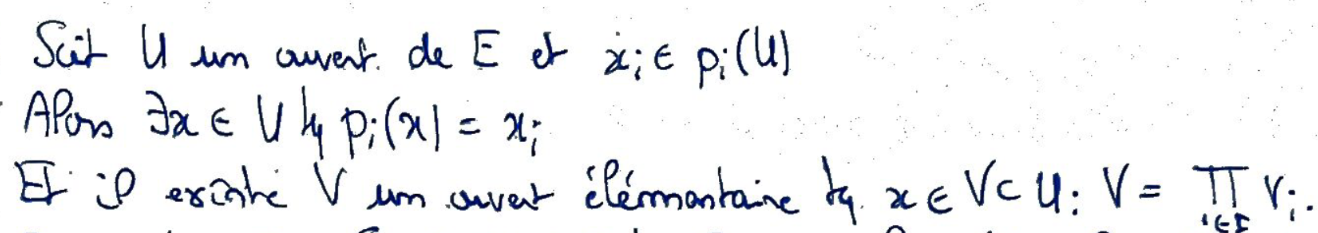 Soit U un ouvert. de E et xᵢ ∈ pᵢ(U)
Alors ∃x ∈ U tq pᵢ(x) = xᵢ
Et il existe V un ouvert élémentaire tq. x ∈ V ⊂ U : V = ∏ Vᵢ.
i∈I